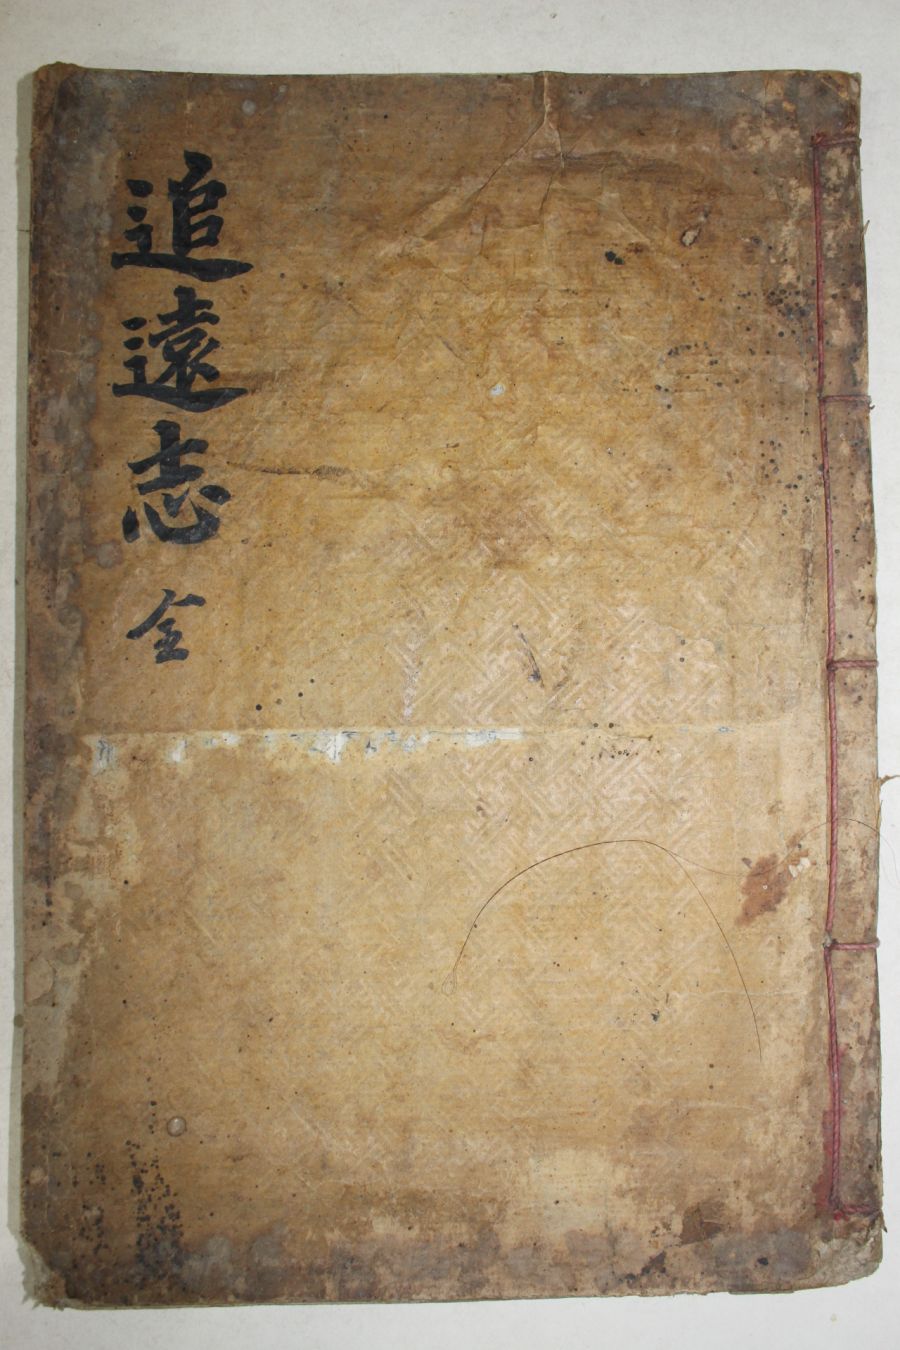 追遠志 全